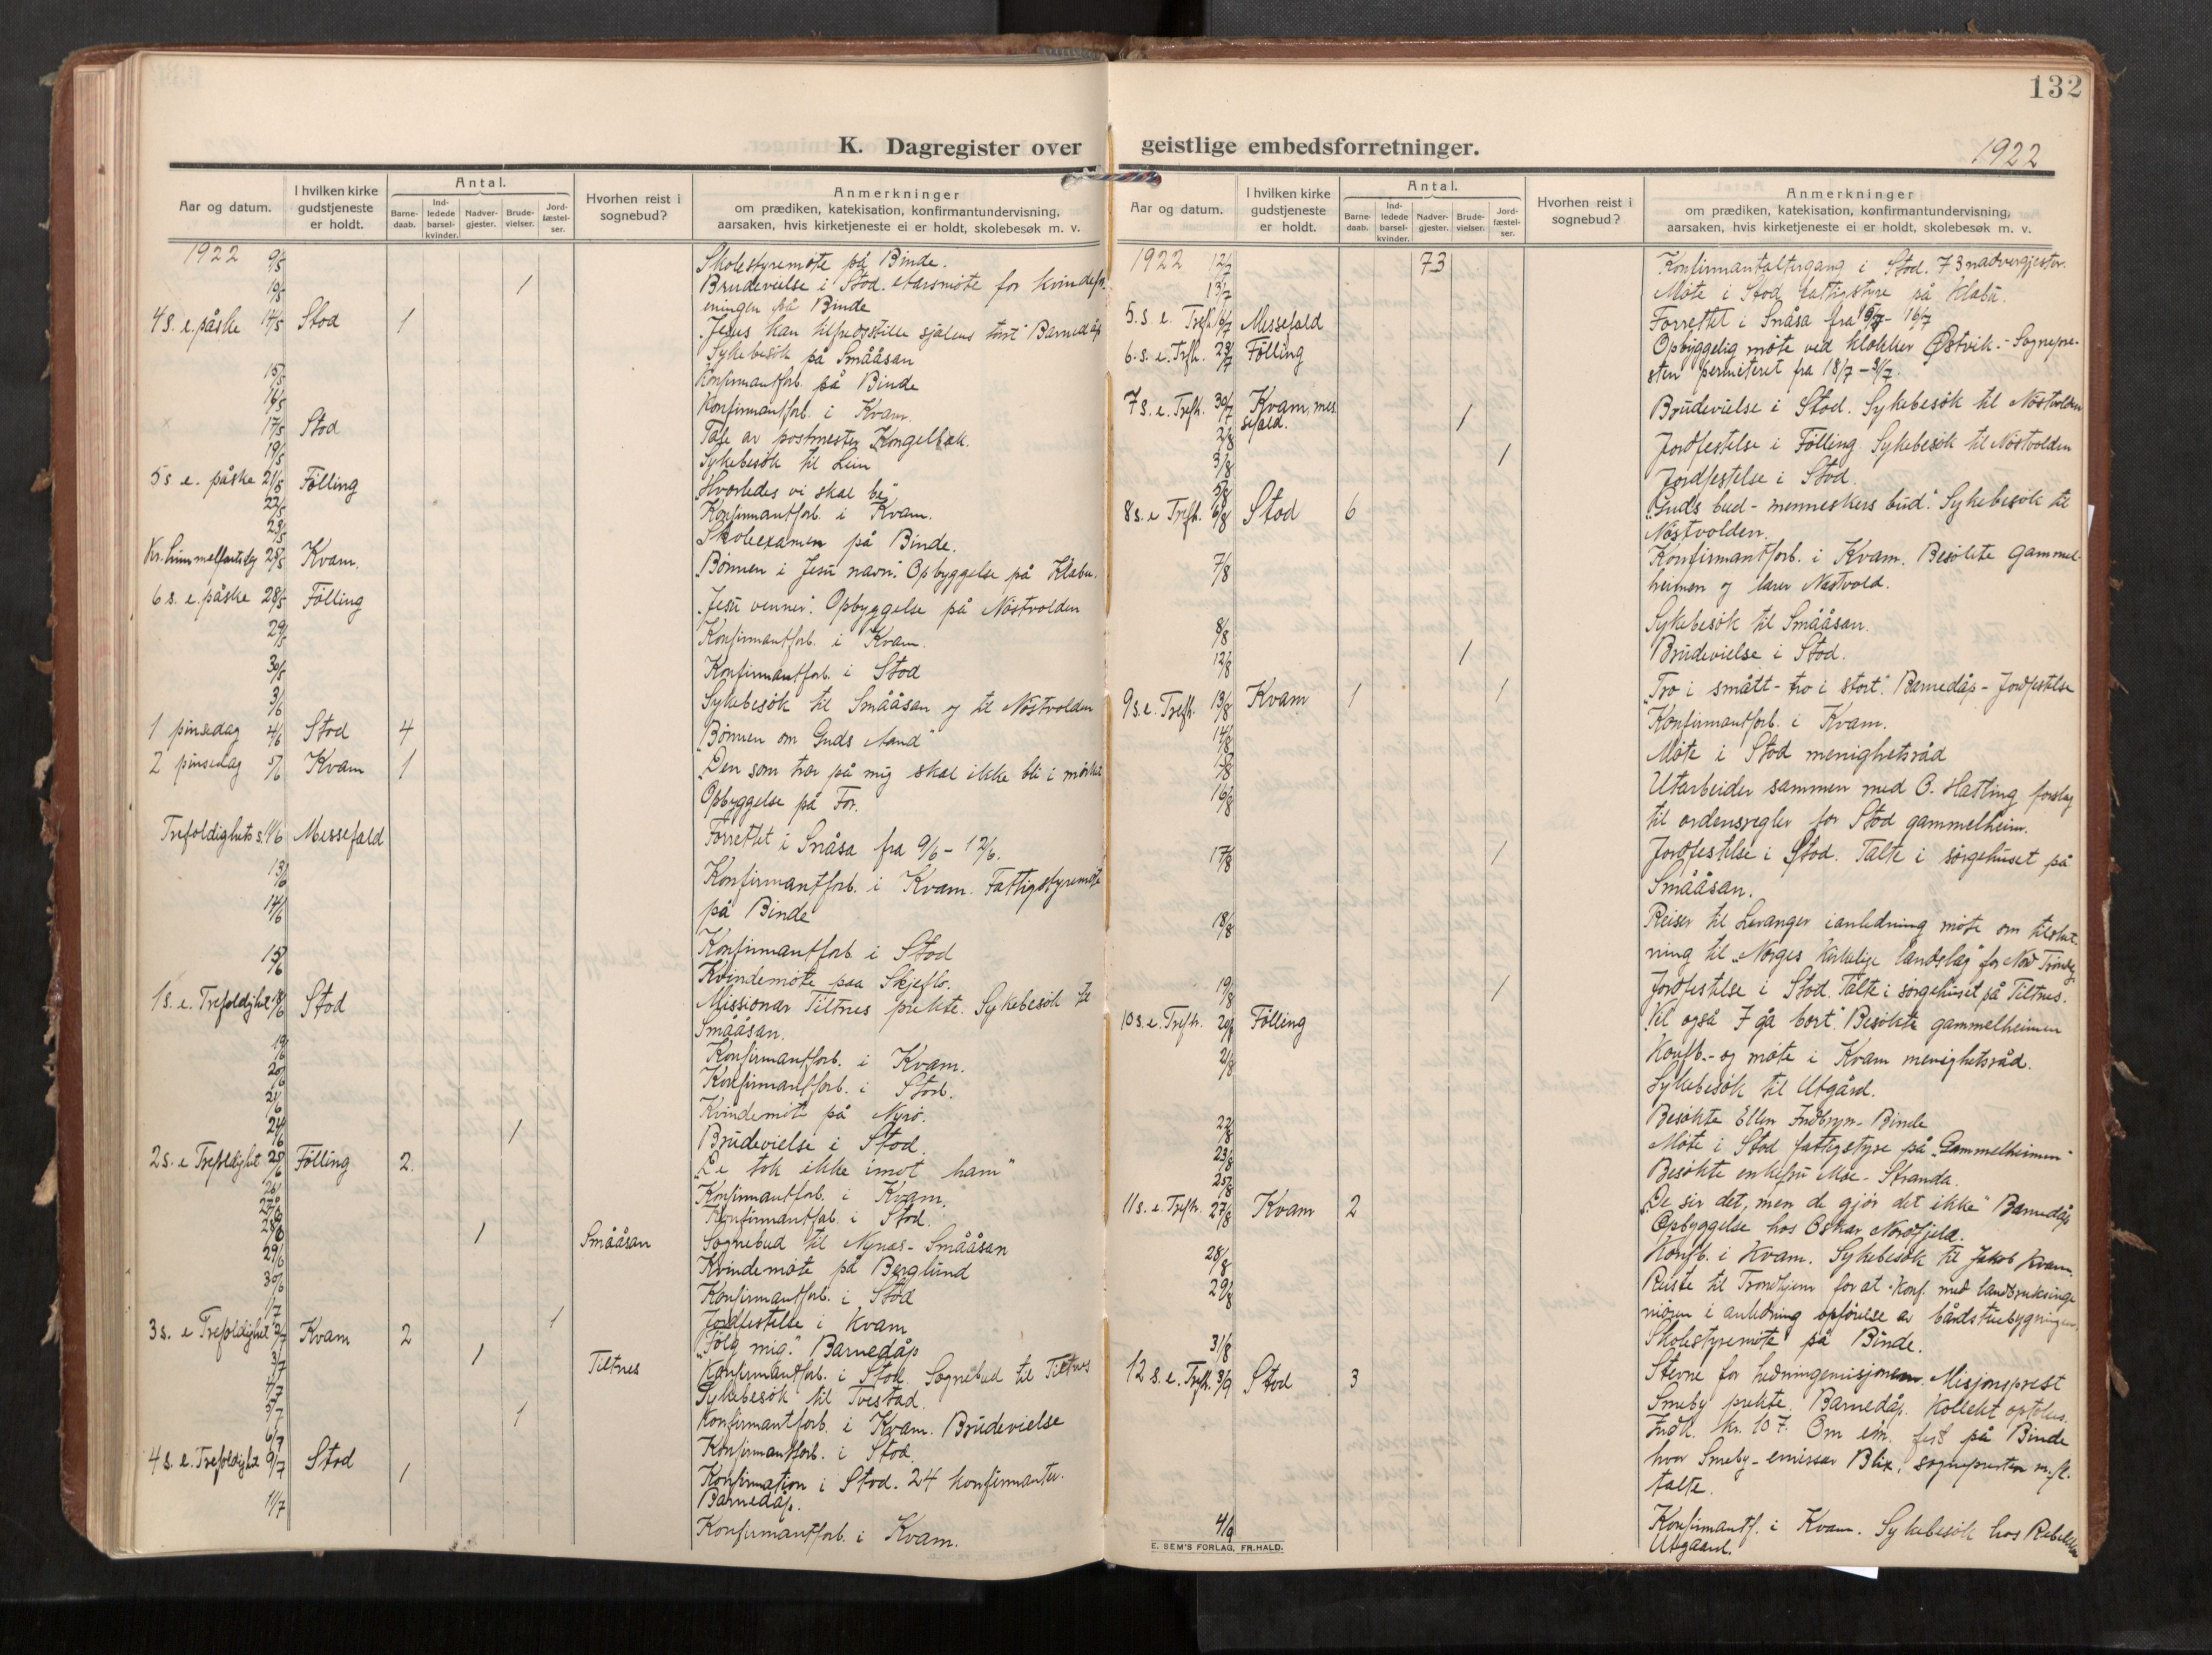 132
K. Dagregister over geistlige embedsforretninger.
1922
Aar og datum.
I hvilken kirke gudstjeneste er holdt.
Antal.
Barne-daab.
Ind-ledede barsel-kvinder.
Nadver-gjester.
Brude-vielser.
Jord-fæstel-ser.
Hvorhen reist i sognebud?
Anmerkninger
om prædiken, katekisation, konfirmantundervisning,
aarsaken, hvis kirketjeneste ei er holdt, skolebesøk m. v.
1922 9/5 Skolestyremöte på Binde.
1 Brudevielse i Stod. Aarsmöte for kvindefor-
eningen på Binde
4 s. e. påske 14/5 Stod 1 Jesus kan tilfredsstille sjælens törst" Barnedåp
Sykebesök på Smååsan
15/5 Konfirmantforb. på Binde
16/5 Konfirmantforb. i Kvam.
17/5 Stod Tale av postmester Kongelbæk.
19/5 Sykebesök til Lein
5 s. e. påske 21/5 Fölling Hvorledes vi skal be"
22/5 Konfirmantforb. i Kvam.
Skoleexamen på Binde.
Kr. himmelfartsdag 25/5 Kvam. Bönnen i Jesu navn". Opbyggelse på Klæbu.
6 s. e. påske 28/5 Fölling "Jesu venner". Opbyggelse på Nöstvolden
29/5 Konfirmantforb. i Kvam.
30/5 Konfirmantforb. i Stod
3/6 Sykebesök til Smååsan og til Nöstvolden
1 pinsedag 4/6 Stod 4 "Bönnen om Guds Aand"
2 pinsedag 5/6 Kvam 1 "Den som tror på mig skal ikke bli i mörket
Opbyggelse på For.
Trefoldighets s. 11/6 Messefald Forrettet i Snåsa fra 9/6 - 12/6.
13/6 Konfirmantforb. i Kvam. Fattigstyremöte
på Binde
14/6 Konfirmantforb. i Stod
15/6 Kvindemöte paa Skjeflo.
1 s. e. Trefoldighet 18/6 Stod Missionær Tiltnes prekte. Sykebesök til
Smååsan.
19/6 Konfirmantforb. i Kvam.
20/6 Konfirmantforb. i Stod.
21/6 Kvindemöte på Nyrö.
24/6 1 Brudevielse i Stod.
2 s. e Trefoldighet 25/6 Fölling 2. "De tok ikke imot ham"
26/6 Konfirmantforb. i Kvam.
27/6 Konfirmantforb. i Stod.
28/6 1 Smååsan Sognebud til Nynæs - Smååsan
29/6 Kvindemöte på Berglund
30/6 Konfirmantforb. i Stod
1/7 1 Jordfestelse i Kvam
3 s. e Trefoldighet 2/7 Kvam 2 "Fölg mig." Barnedåp
3/7 1 Tiltnes Konfirmantforb. i Stod. Sognebud til Tiltnes
4/7 Sykebesök til Tvestad.
5/7 1 Konfirmantforb. i Kvam. Brudevielse
6/7 Konfirmantforb. i Stod.
4 s. e. Trefoldighet 9/7 Stod 1 Konfirmation i Stod. 24 konfirmanter.
Barnedåp.
11/7 Konfirmantforb. i Kvam.
Aar og datum.
I hvilken kirke gudstjeneste er holdt.
Antal.
Barne-daab.
Ind-ledede barsel-kvinder.
Nadver-gjester.
Brude-vielser.
Jord-fæstel-ser.
Hvorhen reist i sognebud?
Anmerkninger
om prædiken, katekisation, konfirmantundervisning,
aarsaken, hvis kirketjeneste ei er holdt, skolebesøk m. v.
1922 12/7 73 Konfirmantaltergang i Stod. 73 nadvergjester.
13/7 Möte i Stod fattigstyre på Klæbu.
5. s. e. Trefh. 16/7 Messefald Forrettet i Snåsa fra - 16/7
6. s. e. Trfh. 23/7 Fölling Opbyggelig möte ved klokker Östvik. - Sognepre-
sten permiteret fra 18/7 -
7 s. e. Trefh. 30/7 Kvam, mes-
sefald. 1 Brudevielse i Stod. Sykebesök til Nöstvolden
2/8 Jordfestelse i Fölling Sykebesök til Nöstvolden
3/8 1 Jordfestelse i Stod.
8 s. e Trefh. 6/8 Stod 6 "Guds bud - menneskers bud". Sykebesök til
Nöstvolden.
7/8 Konfirmantforb. i Kvam. Besökte gammel-
heimen og lærer Nöstvold.
8/8 Sykebesök til Smååsan.
12/8 1 Brudevielse i Stod.
9 s. e. Trefh. 13/8 Kvam 1 1 "Tro i smått - tro i stort". Barnedåp - Jordfestelse
14/8 Konfirmantforb. i Kvam.
15/8 Möte i Stod menighetsråd
16/8 Utarbeider sammen med O. Hatling forslag
til ordensregler for Stod gammelheim.
17/8 1 Jordfestelse i Stod. Talte i sörgehuset på
Smååsan.
18/8 Reiser til Levanger i anledning möte om tilslut-
ning til "Norges kirkelige landslag" for Nord Tröndelag
19/8 1 Jordfestelse i Stod. Talte i sörgehuset på Tiltnes.
10 s. e. Trefh. 20/8 Fölling Vil også I gå bort". Besökte gammelheimen
21/8 Konfb. - og möte i Kvam menighetsråd.
Sykebesök til Utgård.
22/8 Besökte Ellen Indbryn - Binde
23/8 Möte i Stod fattigstyre på "Gammelheimen"
25/8 Besökte enkefru Moe - Stranda.
11 s. e. Trefh. 27/8 Kvam 2 "De sir det, men de gjör det ikke" Barnedåp
Opbyggelse hos Oskar Nordfjeld.
28/8 Konfb. i Kvam. Sykebesök til Jakob Kvam.
29/8 Reiste til Trondhjem for at konf. med landbruksinge-
niören i anledning opförelse av bårdstuebygningen.
31/8 Skolestyremöte på Binde.
12 s. e. Trefh. 3/9 Stod 3 Stevne for hedningemisjonen. Misjonsprest
Smeby prekte. Barnedåp. Kollekt optokes.
Indk. kr. 107. Om em. fest på Binde
hvor Smeby - emissær Blix, sognepresten m. fl.
talte.
4/9 Konfirmantf. i Kvam. Sykebesök hos Rebekka
Utgaard.
E. SEM'S FORLAG, FR.HALD.